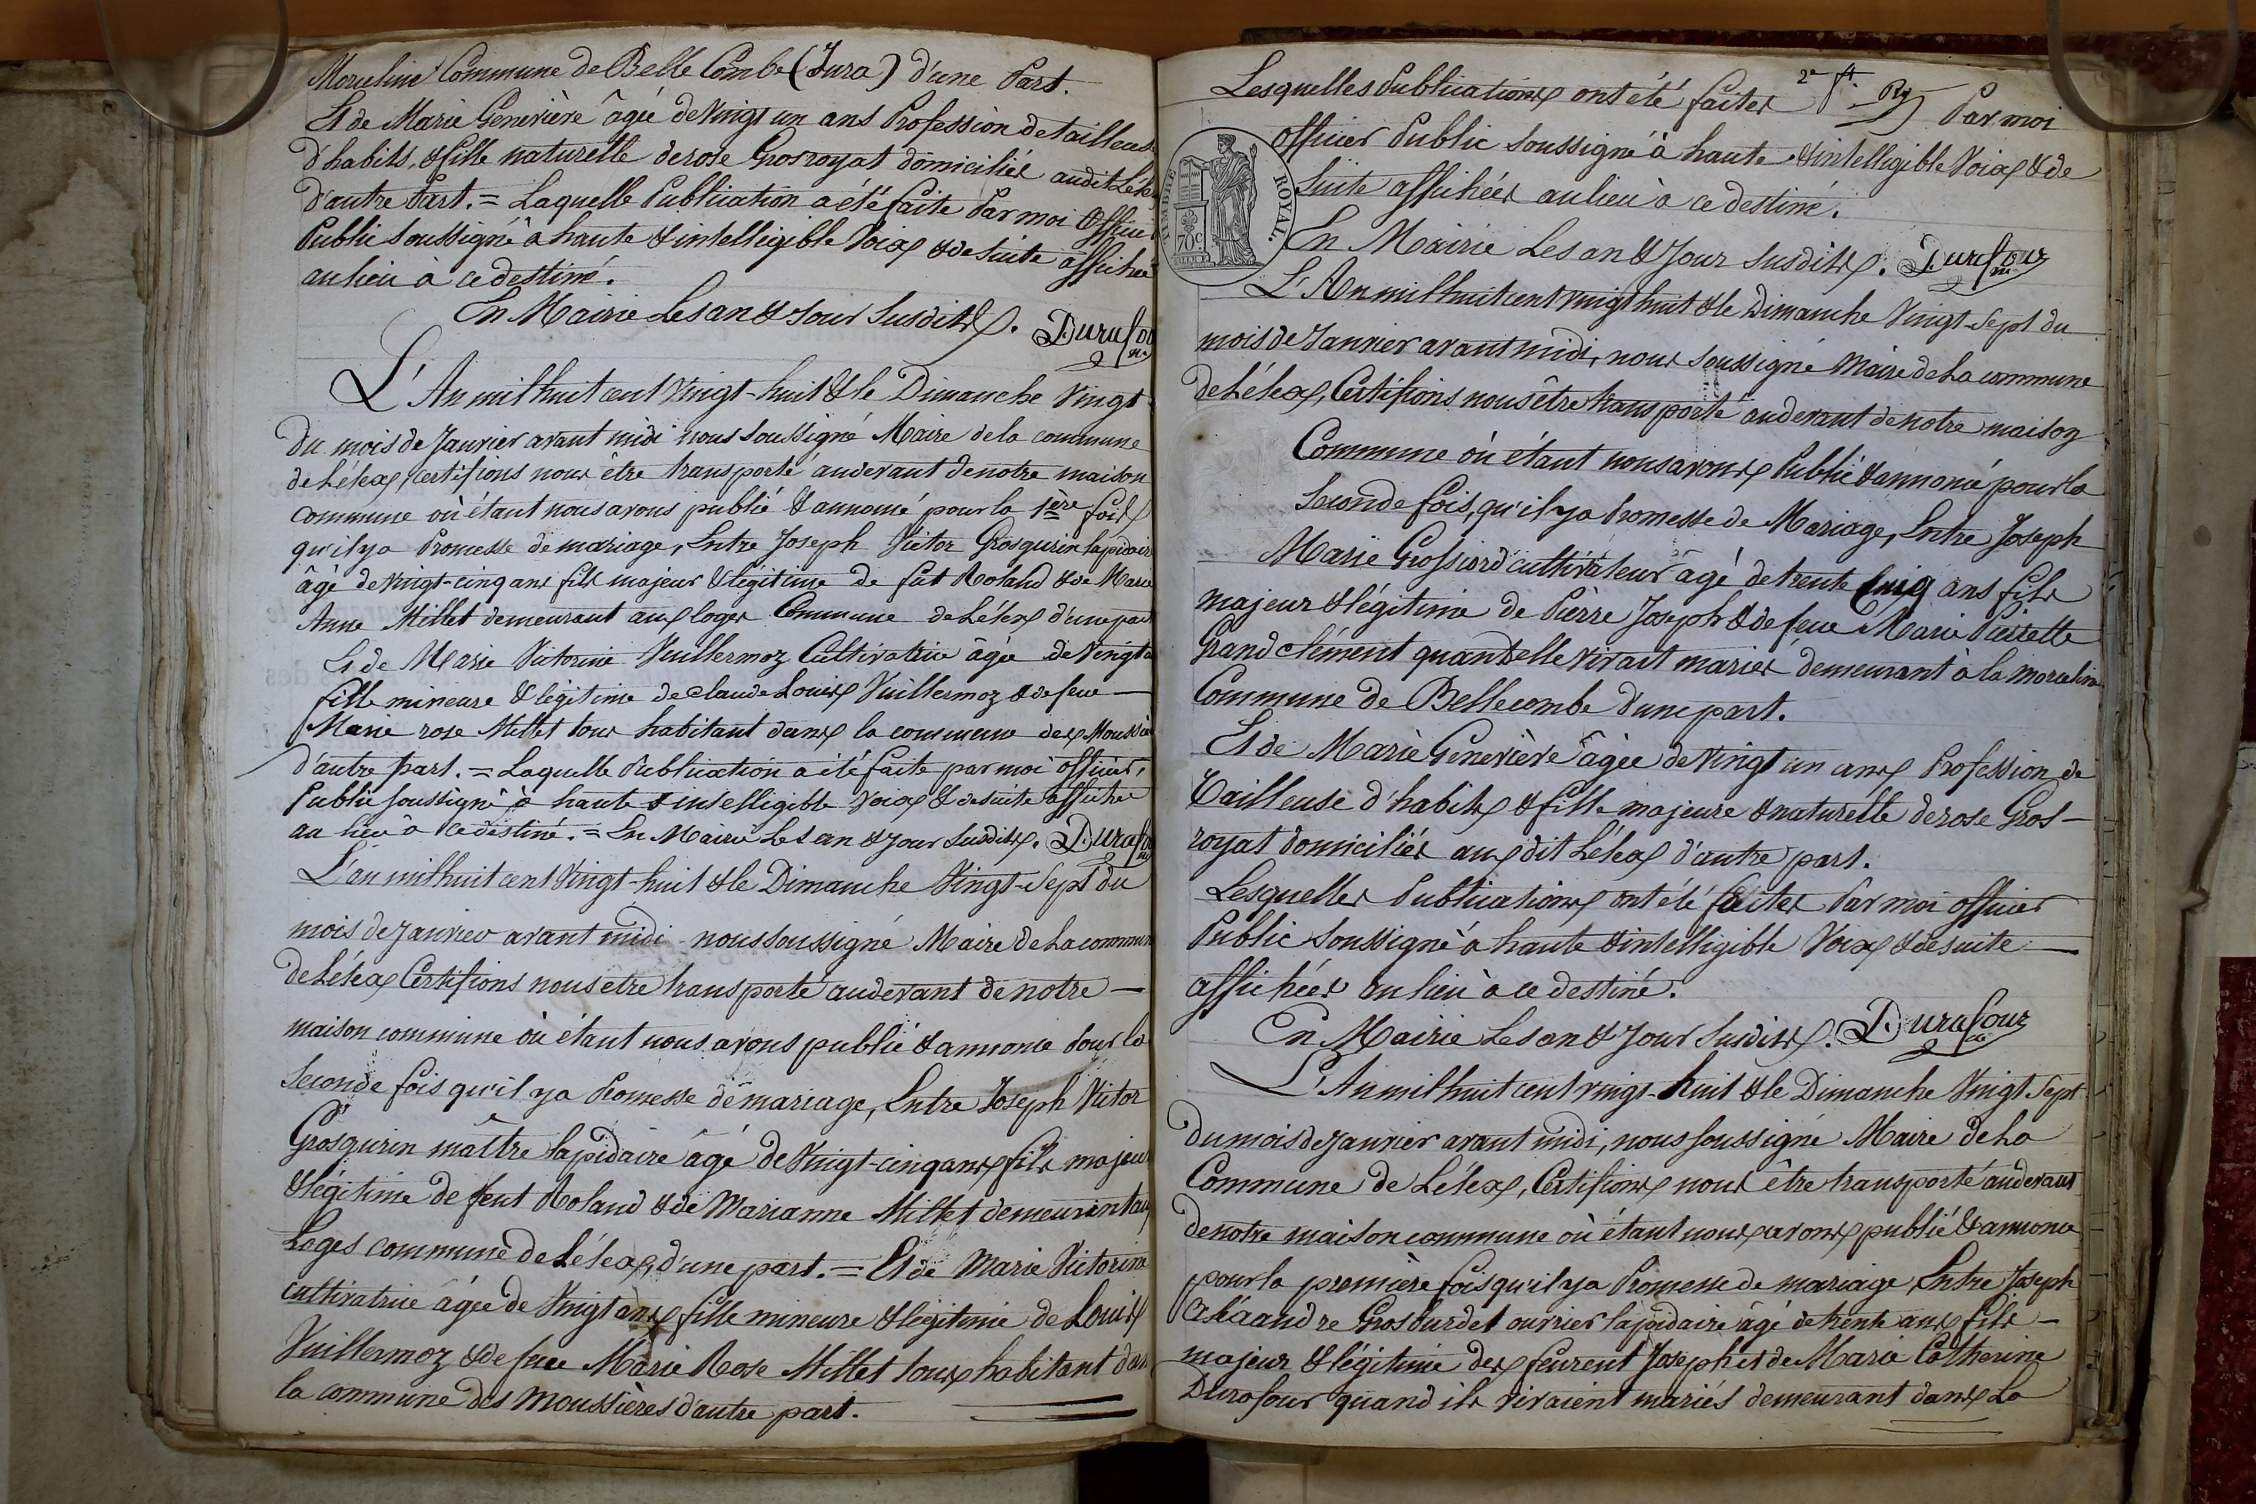 Moreline Commune de Belle Combe (Jura) d'une Part.
Et de Marie Genevière âgée de vingt un ans Profession de tailleuse
d'habits, & fille naturelle de rose Grosroyat domiciliés audit Lelex
d'autre Part. = Laquelle Publication a été faite Par moi Officier
Public soussigné à haute & intelligible Voix & de suite affichée
au lieu à ce destiné.
En Mairie Les an & Jour susdits. Durafour
L'An mil huit cent vingt-huit & le Dimanche vingt
du mois de Janvier avant midi nous soussigné Maire de la commune
de Lélex, certifions nous être transporté audevant de notre maison
commune où étant nous avons publié & annoncé pour la 1ère fois
qu'il y a Promesse de mariage, Entre Joseph Victor Grosgurin lapidaire
âgé de vingt-cinq ans fils majeur & légitime de fut Roland & de Marie
Anne Millet demeurant aux loges Commune de Lélex d'une part
Et de Marie Victorine Vuillermoz Cultivatrice âgée de vingt
fille mineure & légitime de claude Louis Vuillermoz & de feue
Marie rose Millet tous habitant dans la commune des Moussières
d'autre part. = Laquelle Publication a été faite par moi officier
Public soussigné à haute & intelligible voix & de suite affichée
au lieu à ce destiné. = En Mairie Les an & Jour susdits. Durafour
L'an mil huit cent vingt-huit & le Dimanche vingt-sept du
mois de Janvier avant midi nous soussigné Maire de La commune
de Lélex Certifions nous etre transporté audevant de notre
maison commune où étant nous avons publié & annoncé Pour la
Seconde fois qu'il y a Promesse de mariage, Entre Joseph Victor
Grosgurin maître lapidaire âgé de vingt-cinq ans fils majeur
& légitime de feut Roland & de Marianne Millet demeurant aux
Loges commune de Lélex, d'une part. = Et de Marie Victorine
cultivatrice âgée de vingt ans fille mineure & légitime de Louis
Vuillermoz & de feue Marie Rose Millet tous habitant dans
la commune des Moussières d'autre part.
Lesquelles Publications ont été faites 2e Par moi
officier Public soussigné à haute & intelligible Voix & de
suite affichées au lieu à ce destiné.
TIMBRE ROYAL.
70c.
En Mairie Les an & Jour susdits. Durafour
L'An mil huit cent vingt huit & le Dimanche Vingt-Sept du
mois de Janvier avant midi, nous soussigné Maire de La commune
de Lélex, Certifions nous être transporté audevant de notre maison
Commune où étant nous avons Publié & annoncé pour la
Seconde fois, qu'il y a Promesse de Mariage, Entre Joseph
Marie Grossiord cultivateur âgé de trente cinq ans fils
majeur & légitime de Pierre Joseph & de feue Marie Pierrette
Grand clément quand elle vivait mariés demeurant à la Moreline
Commune de Bellecombe d'une part.
Et de Marie Genevière âgée de vingt un ans Profession de
Tailleuse d'habits & fille majeure & naturelle de rose Gros-
royat domiciliés aux dit Lélex d'autre part.
Lesquelles Publications ont été faites Par moi officier
Public soussigné à haute & intelligible Voix & de suite
affichées au lieu à ce destiné.
En Mairie Les an & Jour susdits. Durafour
L'An mil huit cent vingt-huit & le Dimanche vingt sept
du mois de Janvier avant midi, nous soussigné Maire de La
Commune de Lélex, Certifions nous être transporté audevant
de notre maison commune où étant nous avons publié & annoncé
pour la première fois qu'il y a Promesse de mariage, Entre Joseph
Gros burdet ouvrier lapidaire âgé de trente ans fils
majeur & légitime des feurent Joseph et de Marie Catherine
Durafour quand ils vivaient mariés demeurant dans La